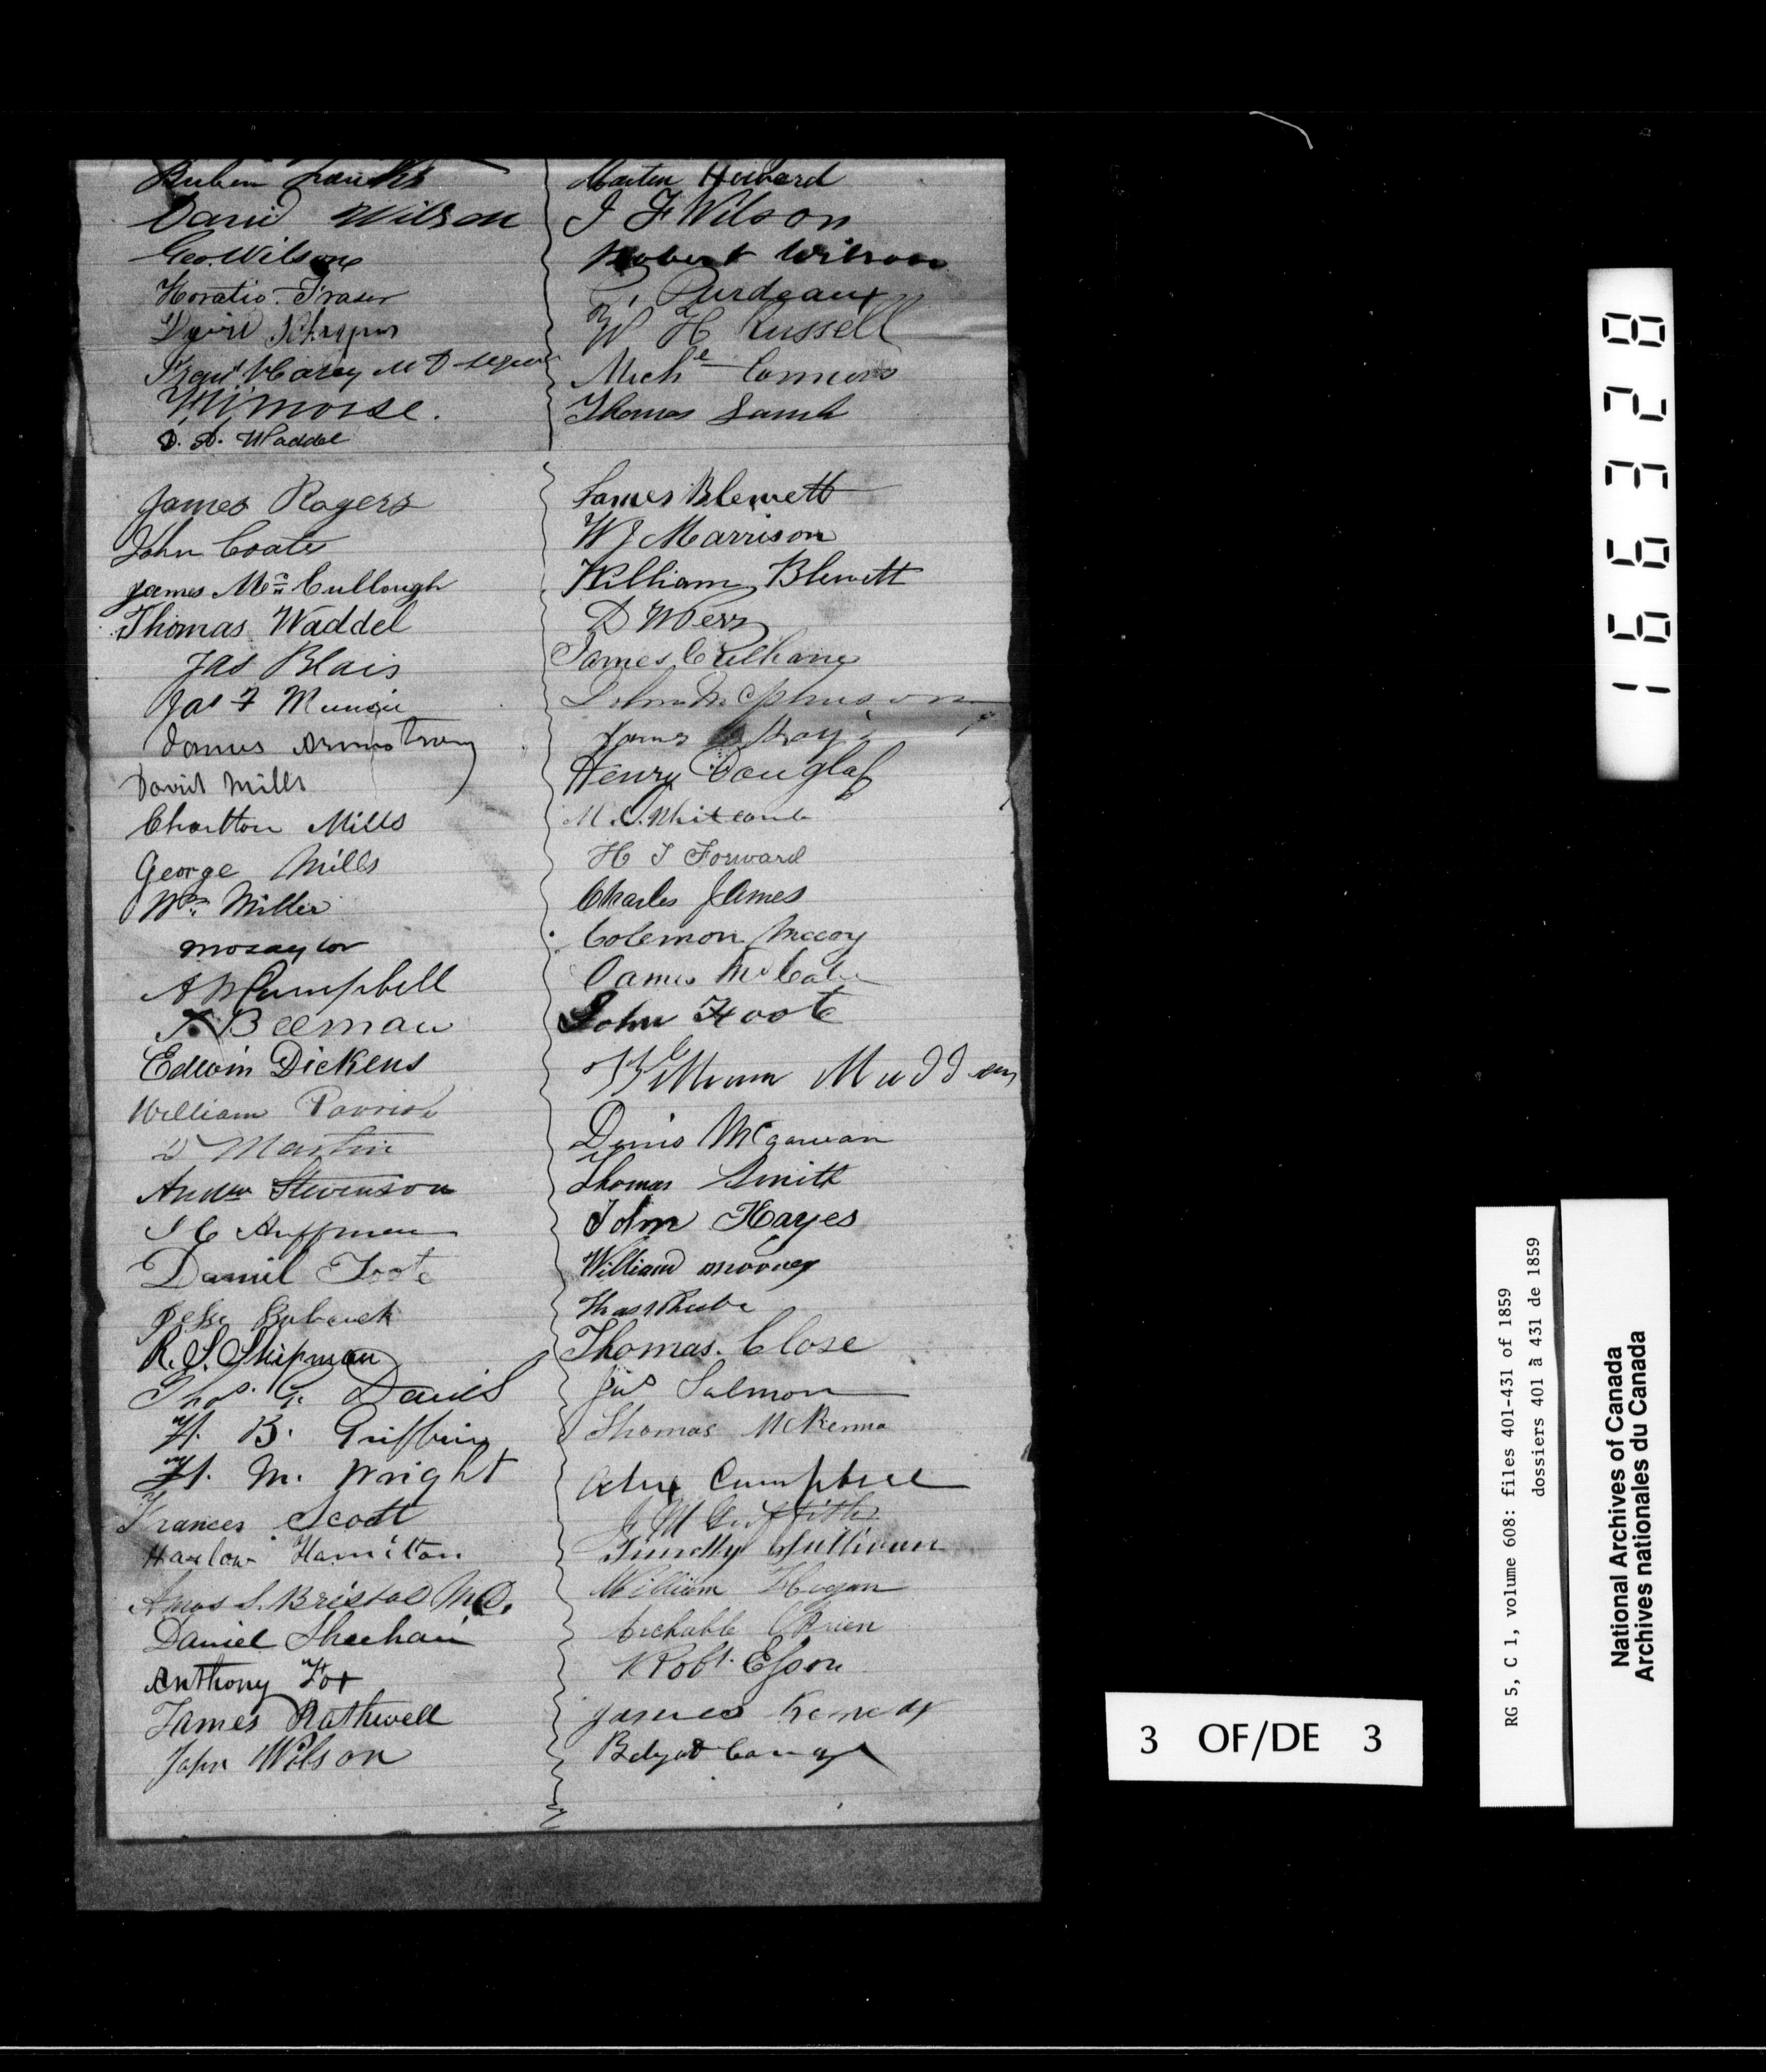 Martin Howard
David Wilson
J F Wilson
Geo. Wilson
Robert Wilson
Horatio Fraser
Burdeaux
David
W H Russell
Carey M D
Mich Connors
Morse.
Thomas Lamb
D. D. Waddel
James Rogers
John Coate
James Mc Cullough
Thomas Waddel
Jas Blair
Jas F
James Armstrong
David Mills
Charlton Mills
George Mills
Wm Miller
A M Campbell
Beeman
Edwin Dickens
William Parrish
D Martin
Andw Stevenson
J C Huffman
Daniel Foote
Jesse Babcock
R. S. Shipman
Thos. G. Davis
H. B. Griffin
H. M. Wright
Frances Scott
Harlow Hamilton
Amos S. Bristol M.D.
Daniel Sheehan
Anthony Fox
James Rathwell
John Wilson
James Blewett
W J Marrison
William Blewett
D
James Culhane
John McPherson
James
Henry Douglass
M. S. Whitcomb
H T Forward
Charles James
Colemon Mccoy
James McCabe
John Foote
William Madden
Denis Mcgowan
Thomas Smith
John Hayes
William mooney
Thomas. Close
Jas Salmon
Thomas McKenna
Alex Campbell
J M Griffith
Timothy Sullivan
William Hogan
OBrien
Robt. Esson
James Kenedy
166328
3 OF/DE 3
RG 5, C 1, volume 608: files 401-431 of 1859
dossiers 401 à 431 de 1859
National Archives of Canada
Archives nationales du Canada